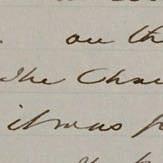 on th
The Cha
it was